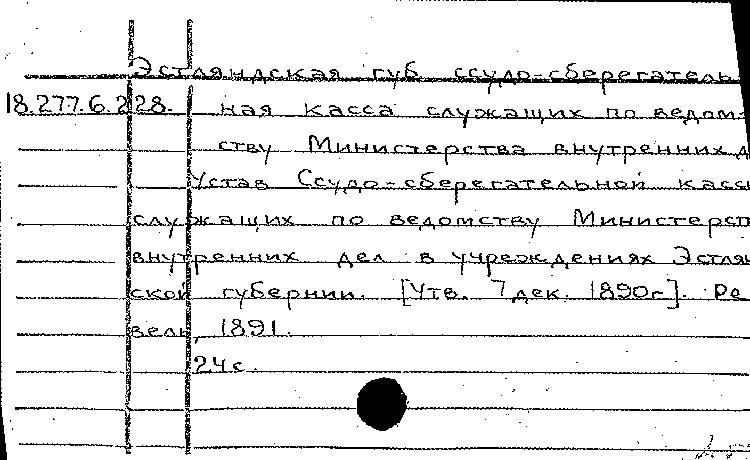 Эстляндская губ ссудо-сберегатель-
18.277.6.228. ная касса служащих по ведом-
ству Министерства внутренних д
Устав Ссудо-сберегательной касс
служащих по ведомству Министерст
внутренних дел в учреждениях Эстлян
ской губернии. [Утв. 7 дек. 1890г]. Ре
вель, 1891.
24 с.